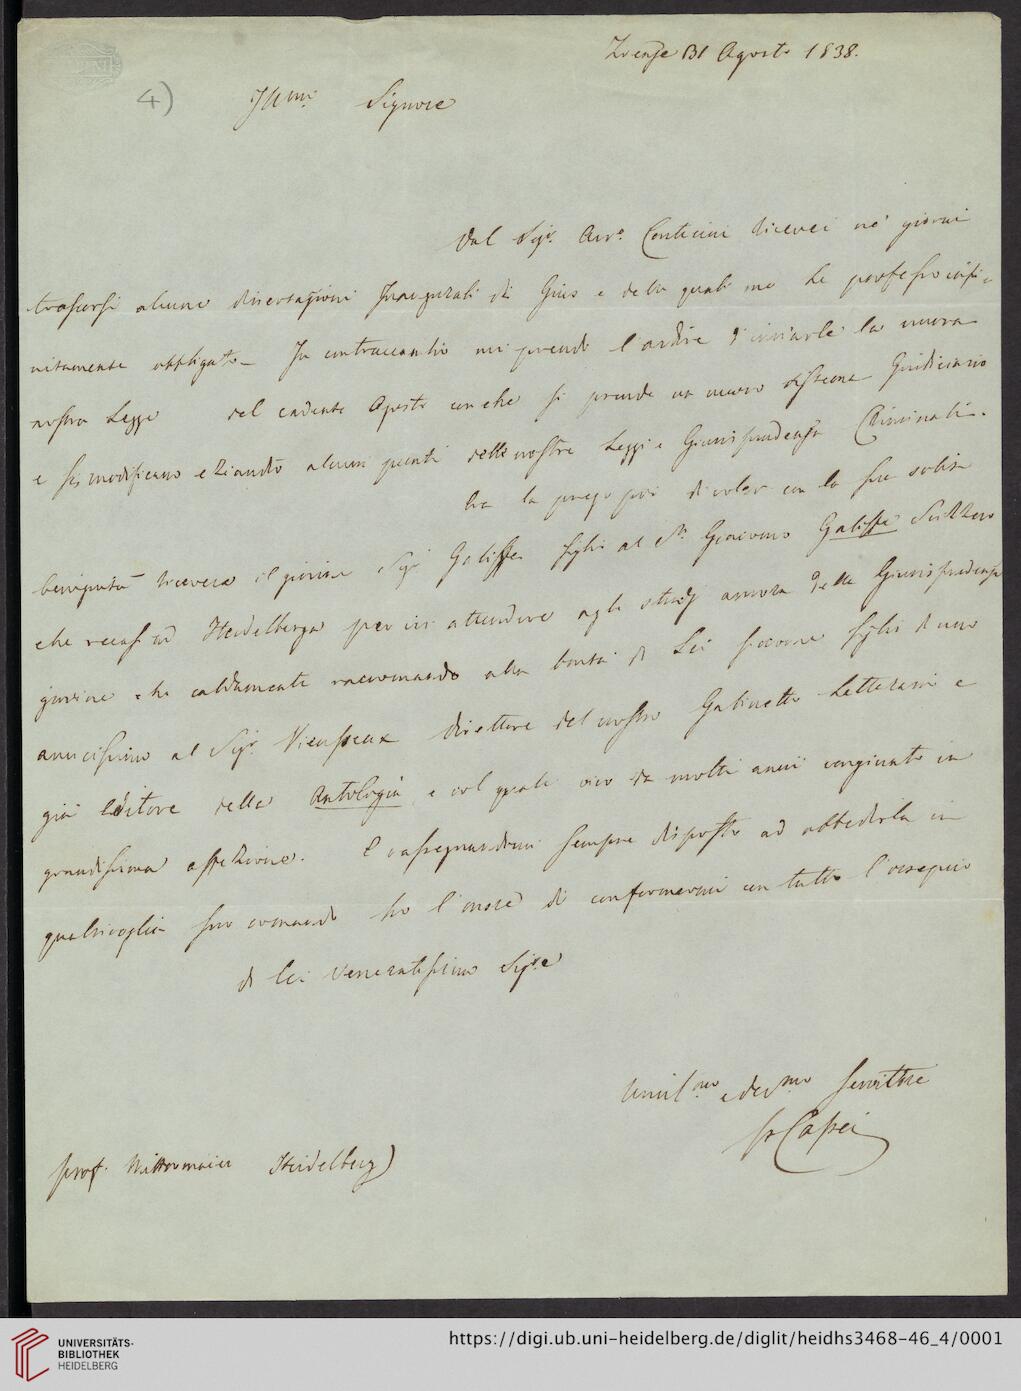 Firenze 31 Agosto 1838.
4)
Illmo Signore
Dal Sigr. Avvo. Conticini ricevei ne' giorni
trascorsi alcune dissertazioni Inaugurali di Gius e delle quali me Le professo infi-
nitamente obbligato. In contraccambio mi prendo l'ardire d'inviarle la nuova
nostra Legge del cadente Agosto con che si prende un nuovo sistema Giudiciario
e si modificano eziandio alcuni punti delle nostre Leggi e Giurisprudenza Criminali.
La prego poi di voler con la sua solita
benignità ricevere il giovine Sigr Galiffe figlio al Sr. Giacomo Galiffe Svizzero
che recasi ad Heidelberga per ivi attendere agli studj ancora della Giurisprudenza
giovine che caldamente raccomando alla bontà di Lei siccome figlio di uno
amicissimo al Sigr Vieusseux direttore del nostro Gabinetto Letterario e
già Editore della Antologia, e col quale sono da molti anni congiunto in
grandissima affezione. E rassegnandomi sempre disposto ad obbedirla in
qualsivoglia suo comando ho l'onore di confermarmi con tutto l'ossequio
di Lei Veneratissimo Sigre
Umilmo e devmo servitore
P. Capei
Prof. Mittermaier Heidelberg)
UNIVERSITÄTS-
BIBLIOTHEK
HEIDELBERG
https://digi.ub.uni-heidelberg.de/diglit/heidhs3468-46_4/0001